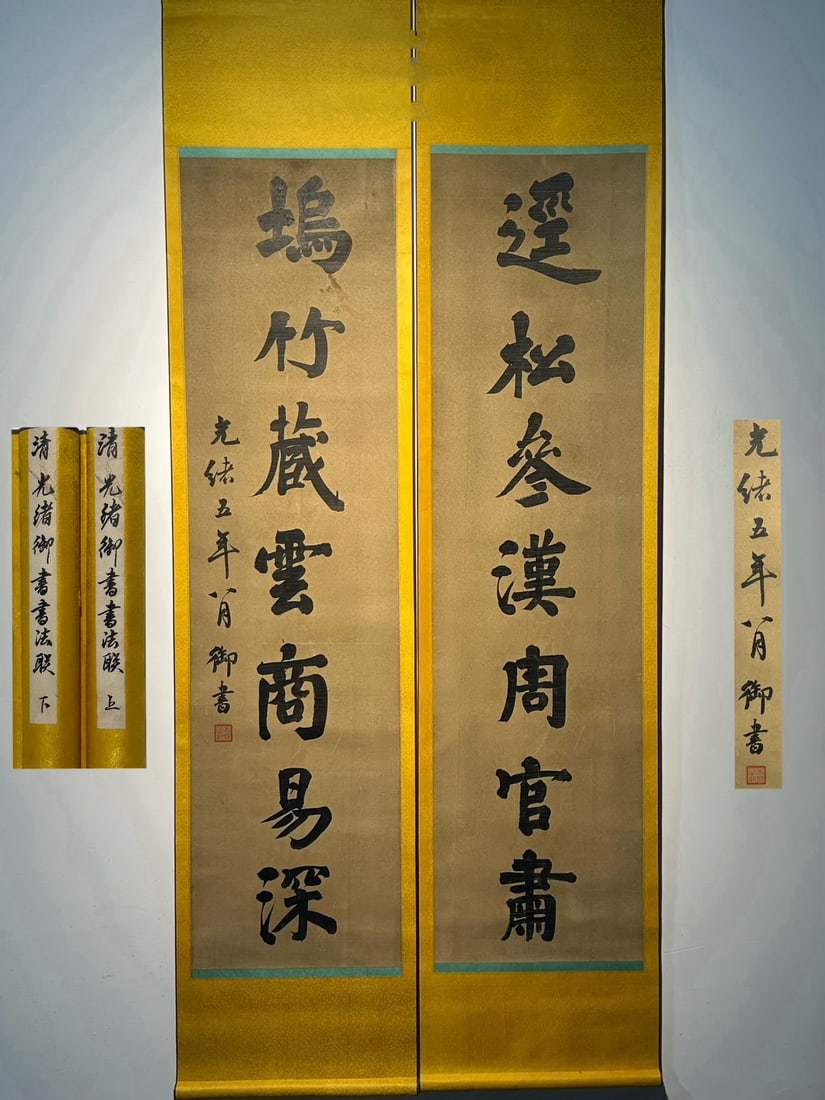 逕松參漢周官肅
塢竹藏雲商易深
光緒五年八月御書
清 光緒御書書法联 上
清 光緒御書書法联 下
光緒五年八月御書